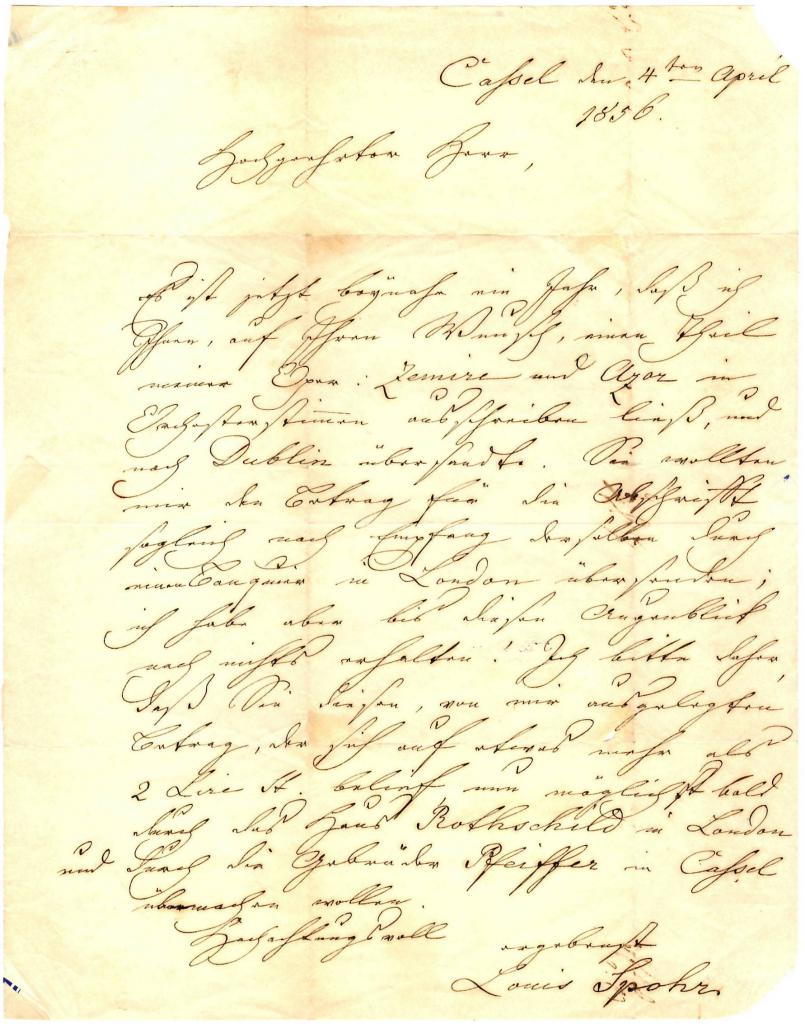 Cassel den 4ten April
1856.
Hochgeehrter Herr,
Es ist jetzt beynahe ein Jahr, daß ich
Ihnen, auf Ihren Wunsch, einen Theil
meiner Oper: Zemire und Azor in
Orchesterstimmen ausschreiben ließ, und
nach Dublin übersandte. Sie wollten
mir den Betrag für die Abschrifft
sogleich nach Empfang derselben durch
einen Banquier in London übersenden;
ich habe aber bis diesen Augenblick
noch nichts erhalten! Ich bitte daher,
daß Sie diesen, von mir ausgelegten
Betrag, der sich auf etwas mehr als
2 Livr St. belief nun möglichst bald
durch das Haus Rothschild in London
und durch die Gebrüder Pfeiffer in Cassel
übermachen wollen.
Hochachtungsvoll
ergebenst
Louis Spohr.